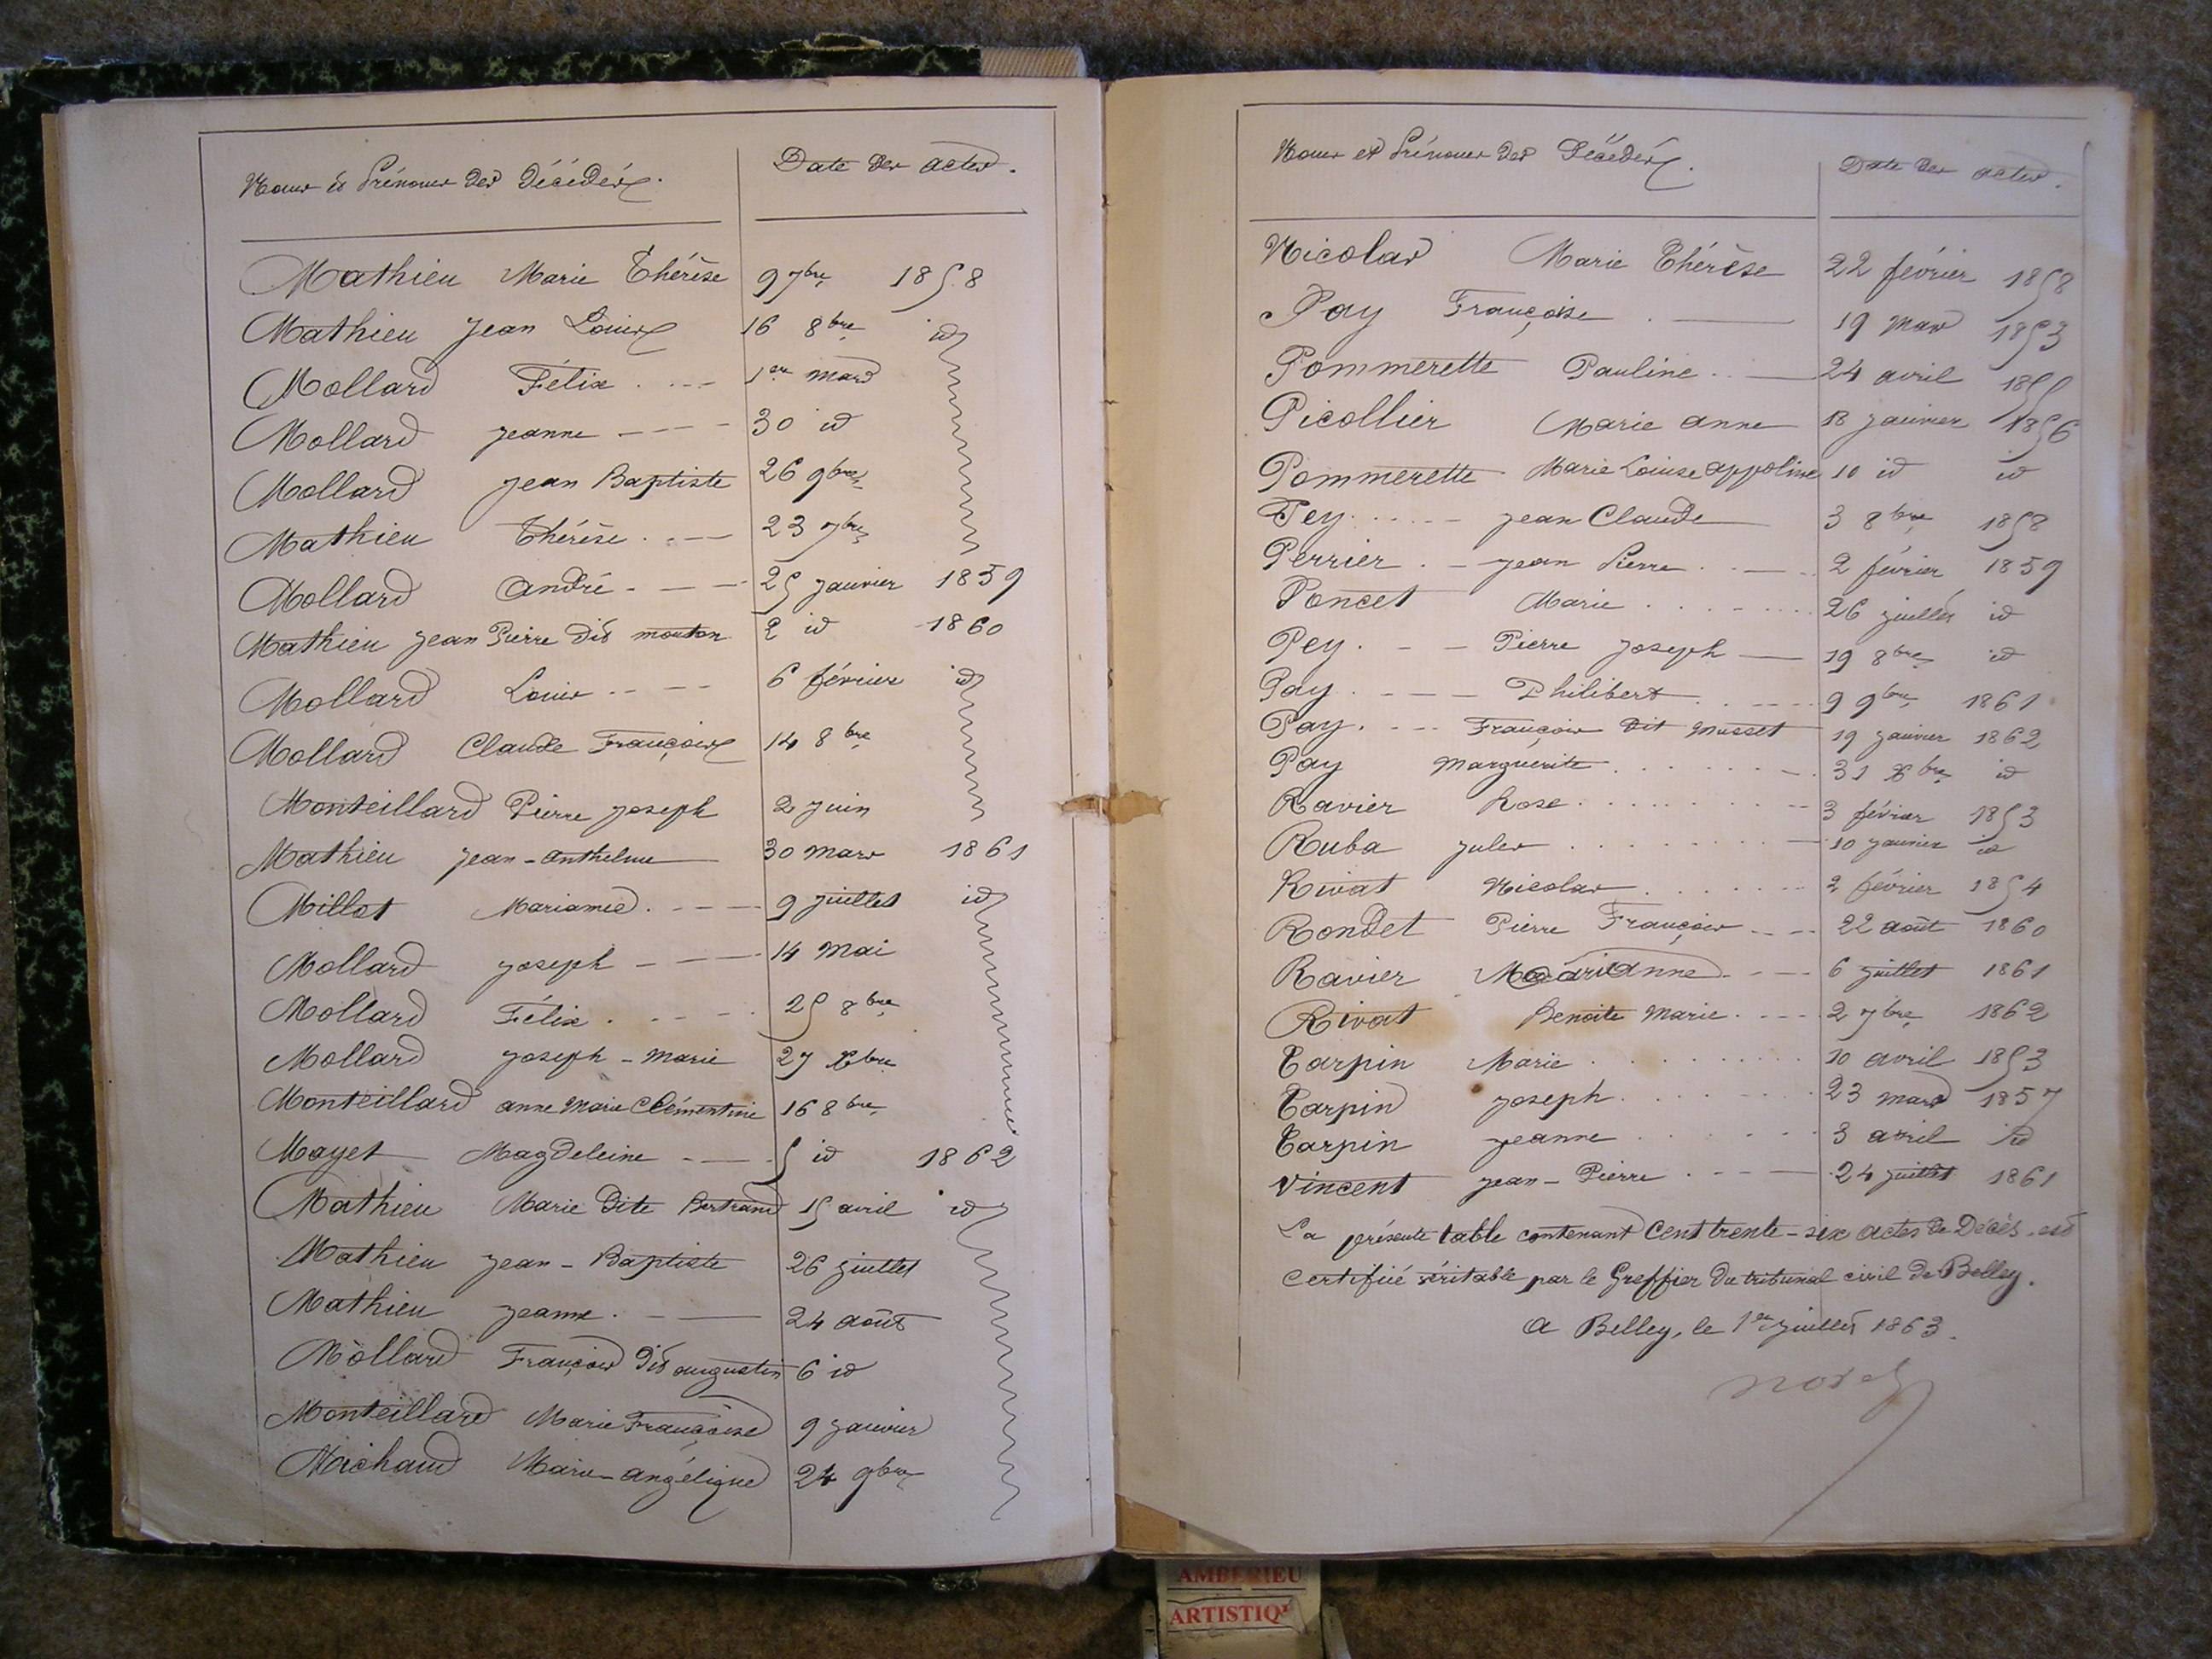 Noms et Prénoms des Décédés. Date des actes.
Mathieu Marie Thérèse 9 7bre 1858
Mathieu Jean Louis 16 8bre id
Mollard Félix 1er mars
Mollard Jeanne 30 id
Mollard Jean Baptiste 26 9bre
Mathieu Thérèse 23 7bre
Mollard André 25 Janvier 1859
Mathieu Jean Pierre dit mouton 2 id 1860
Mollard Louis 6 février id
Mollard Claude François 14 8bre
Monteillard Pierre Joseph 2 Juin
Mathieu Jean-Anthelme 30 mars 1861
Millot Marianne 9 Juillet id
Mollard Joseph 14 Mai
Mollard Félix 25 8bre
Mollard Joseph-Marie 27 Xbre
Monteillard Anne Marie Clémentine 16 8bre
Mayet Magdeleine 5 id 1862
Mathieu Marie dite Bertrand 15 avril id
Mathieu Jean-Baptiste 26 Juillet
Mathieu Jeanne 24 août
Mollard François dit augustin 6 id
Monteillard Marie Françoise 9 Janvier
Michaud Marie-angélique 24 9bre
Noms et Prénoms des Décédés. Date des actes.
Nicolas Marie Thérèse 22 février 1858
Pay Françoise 19 mars 1853
Pommerette Pauline 24 avril 1855
Picollier Marie anne 18 Janvier 1856
Pommerette Marie Louise appoline 10 id id
Pey Jean Claude 3 8bre 1858
Perrier Jean Pierre 2 février 1859
Poncet Marie 26 Juillet id
Pey Pierre Joseph 19 8bre id
Pay Philibert 9 9bre 1861
Pay François dit Musset 19 Janvier 1862
Pay Marguerite 31 Xbre id
Ravier Rose 3 février 1853
Ruba Jules 10 Janvier id
Rivat Nicolas 2 février 1854
Rondet Pierre François 22 août 1860
Ravier Marianne 6 Juillet 1861
Rivat Benoite Marie 2 7bre 1862
Tarpin Marie 10 avril 1853
Tarpin Joseph 23 mars 1857
Tarpin Jeanne 3 avril id
Vincent Jean-Pierre 24 Juillet 1861
La présente table contenant Cent trente-six actes de Décès, est
certifiié véritable par le Greffier du tribunal civil de Belley.
A Belley, le 1er Juillet 1863.
AMBERIEU
ARTISTIQ